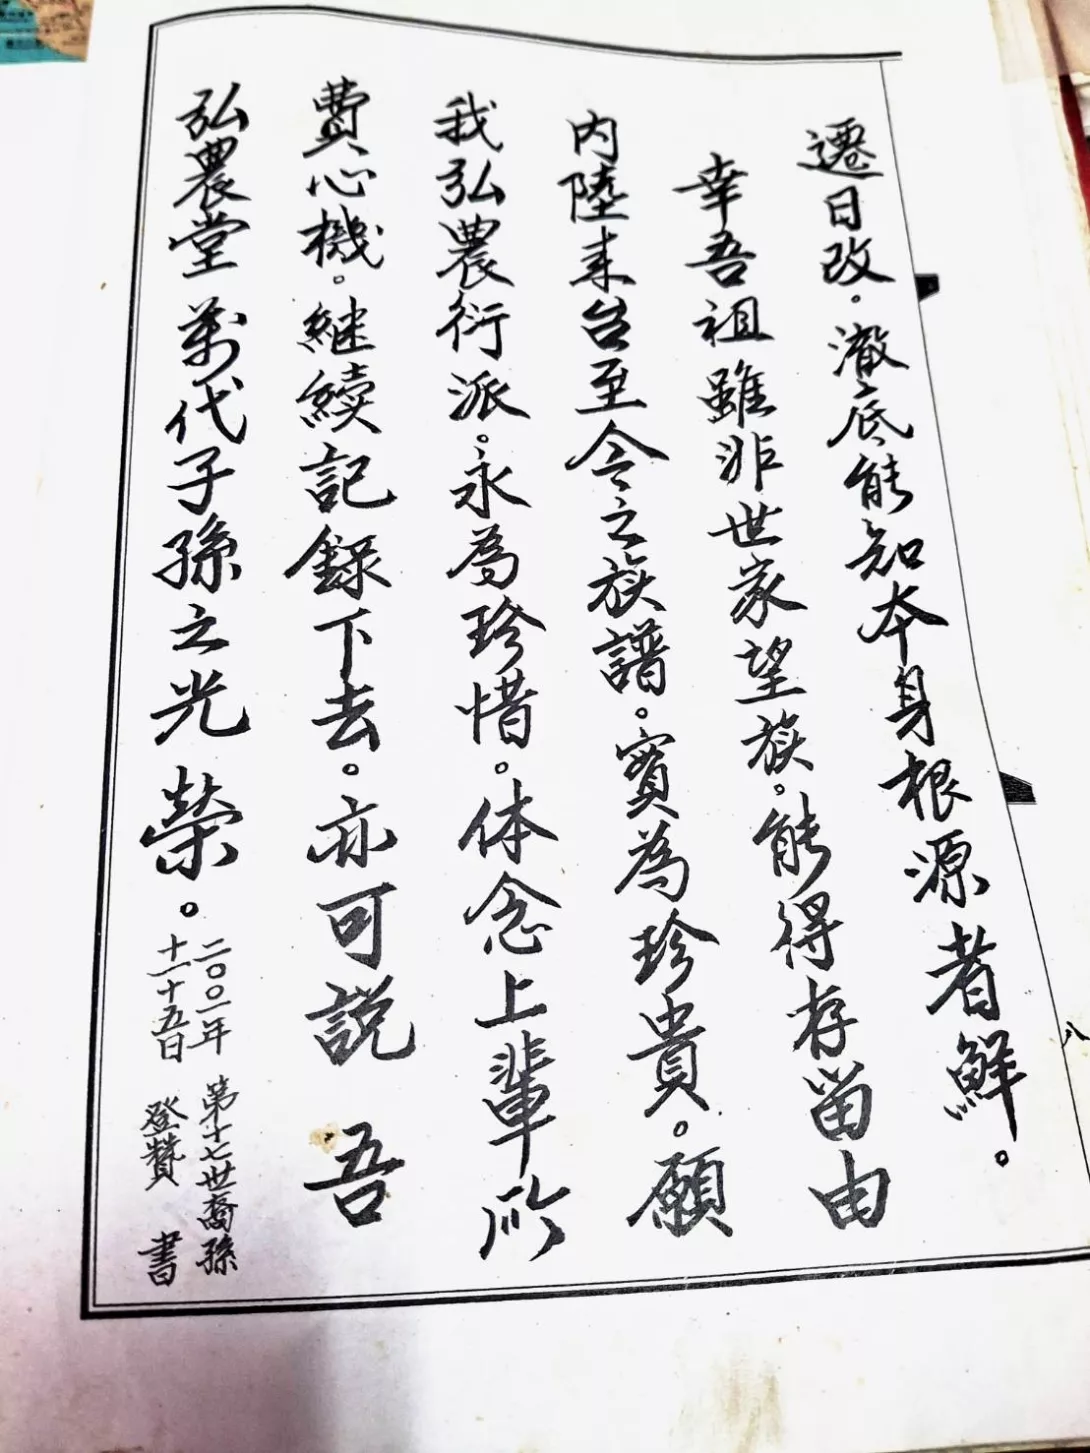 遷日改。澈底能知本身根源者鮮。
幸吾祖雖非世家望族。能得存留由
内陸來台至今之族譜。實為珍貴。願
我弘農衍派。永為珍惜。体念上輩所
費心機。継續記錄下去。亦可說 吾
弘農堂萬代子孫之光榮。
二〇〇一年 第十七世裔孫
十一十五日 登贊 書
八